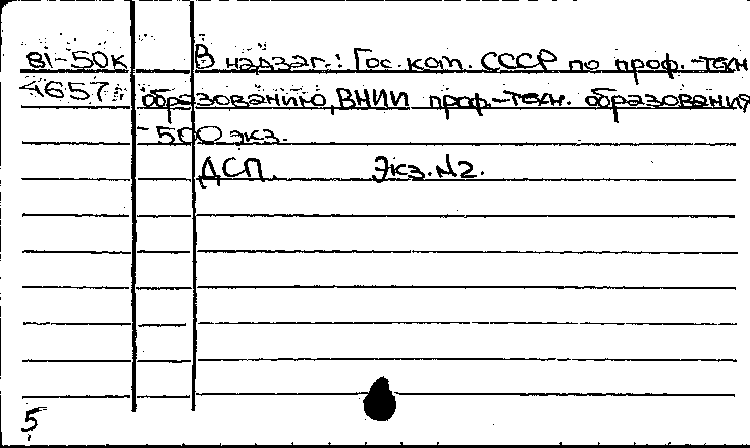 81-50к В надзаг.: Гос. ком. СССР по проф.-техн.
4657 образованию, ВНИИ проф.-техн. образования
- 500 экз.
ДСП. Экз. №2.
5